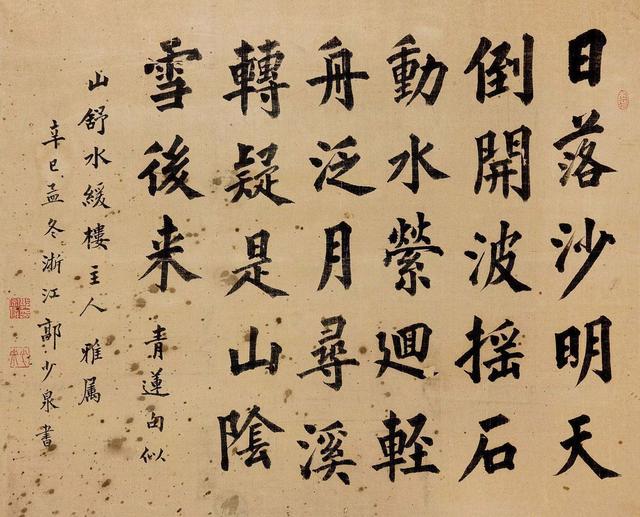 日落沙明天
倒開波搖石
動水縈迴軽
舟泛月尋溪
轉疑是山陰
雪後来
青蓮句似
山舒水緩樓主人雅属
辛巳孟冬浙江郭少泉書